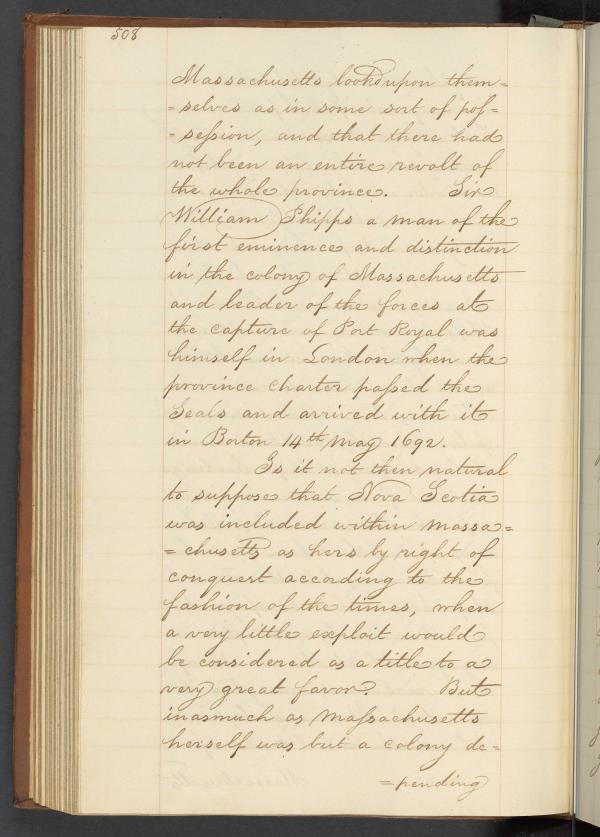 508
Massachusetts looked upon them=
=selves as in some sort of pos=
=session, and that there had
not been an entire revolt of
the whole province. Sir
William Phipps a man of the
first eminence and distinction
in the colony of Massachusetts
and leader of the forces at
the capture of Port Royal was
himself in London when the
province charter passed the
Seals and arrived with it
in Boston 14th May 1692.
Is it not then natural
to suppose that Nova Scotia
was included within Massa=
=chusetts as hers by right of
conquest according to the
fashion of the times, when
a very little exploit would
be considered as a title to a
very great favor? But
inasmuch as Massachusetts
herself was but a colony de=
=pending